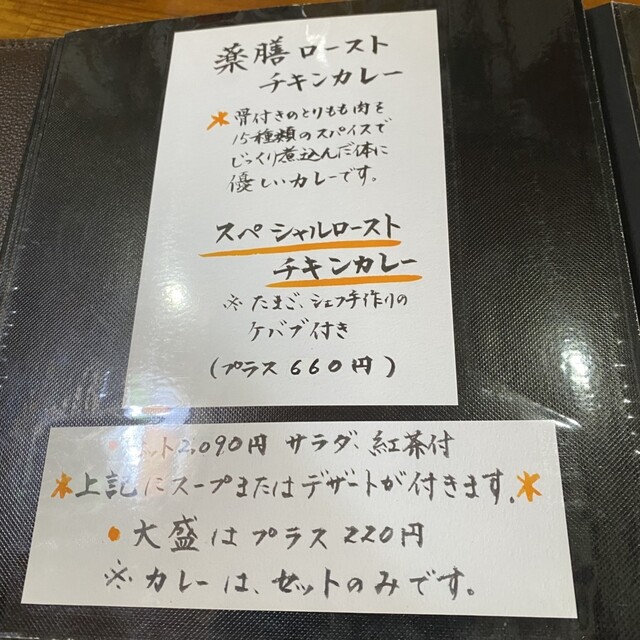 薬膳ロースト
チキンカレー
★骨付きのとりもも肉を
15種類のスパイスで
じっくり煮込んだ体に
優しいカレーです。
スペシャルロースト
チキンカレー
※たまご、シェフ手作りの
ケバブ付き
(プラス660円)
ット2,090円 サラダ、紅茶付
★上記にスープまたはデザートが付きます。★
●大盛はプラス220円
※カレーは、セットのみです。